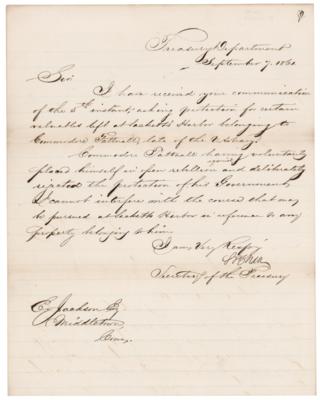 Treasury Department
September 7, 1861
Sir
I have received your communication
of the 5th instant, asking protection for certain
valuables left at Sacketts Harbor belonging to
Commodore Tattnall, late of the U.S. Navy.
Commodore Tattnall having voluntarily
placed himself in open rebellion and deliberately
rejected the protection of his Government,
I cannot interfere with the course that may
be pursued at Sacketts Harbor in reference to any
property belonging to him.
I am, Very Respfy
S P Chase
Secretary of the Treasury
E. Jackson Esq
Middletown
Conn.